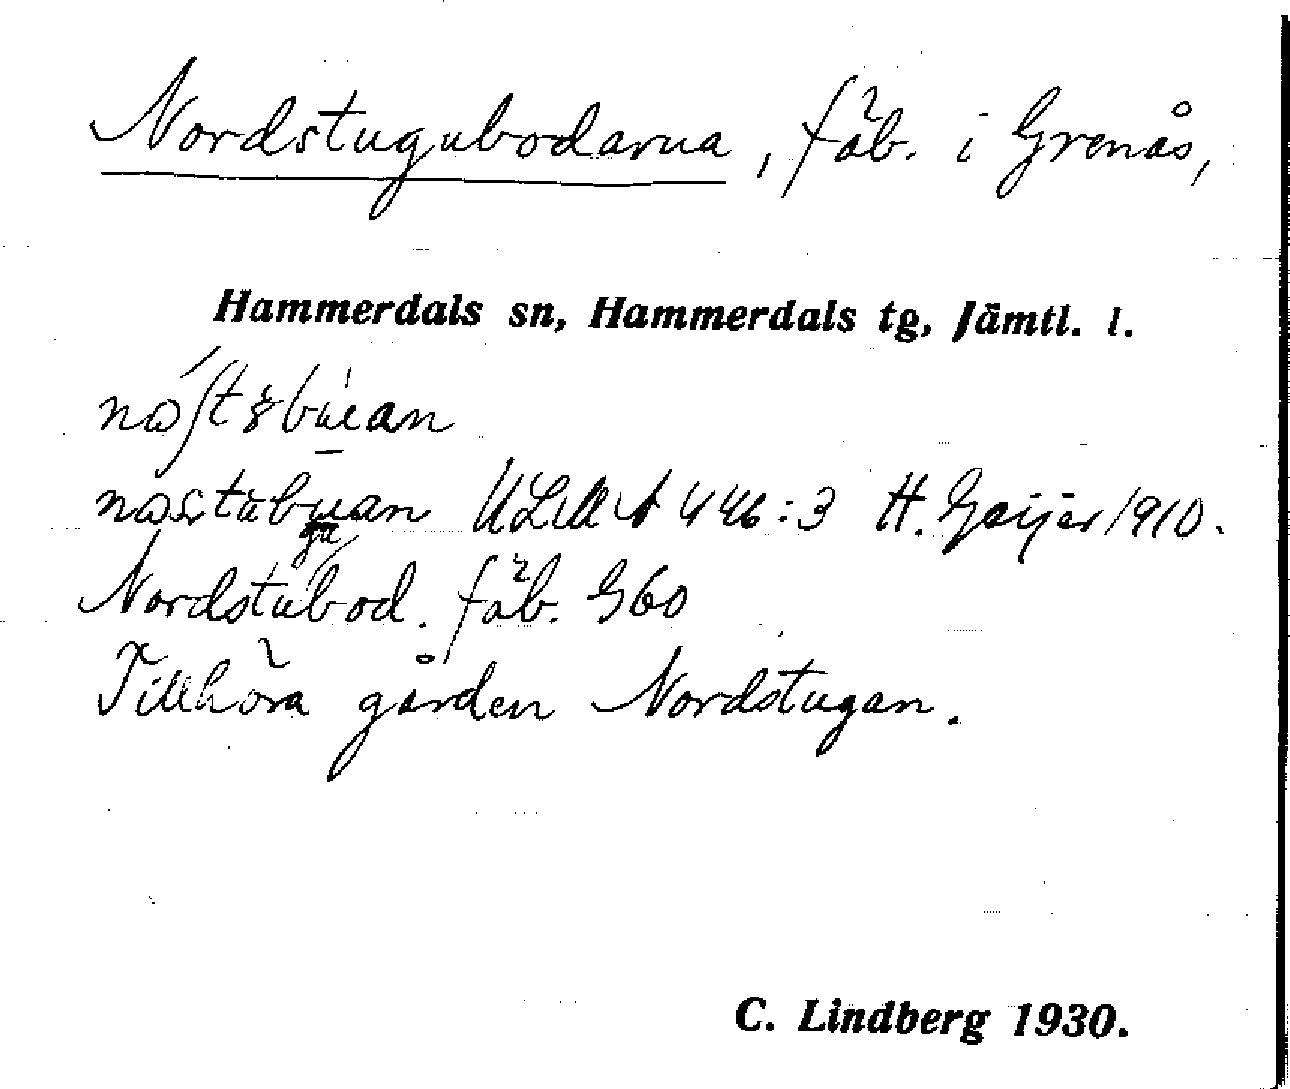 Nordstugubodarna, fäb. i Grenås,
Hammerdals sn, Hammerdals tg, Jämtl. l.
nostubuan ULMA 446:3 H. Geijer 1910.
gu
Nordstubod. fäb. G60
Tillhöra gården Nordstugan.
C. Lindberg 1930.